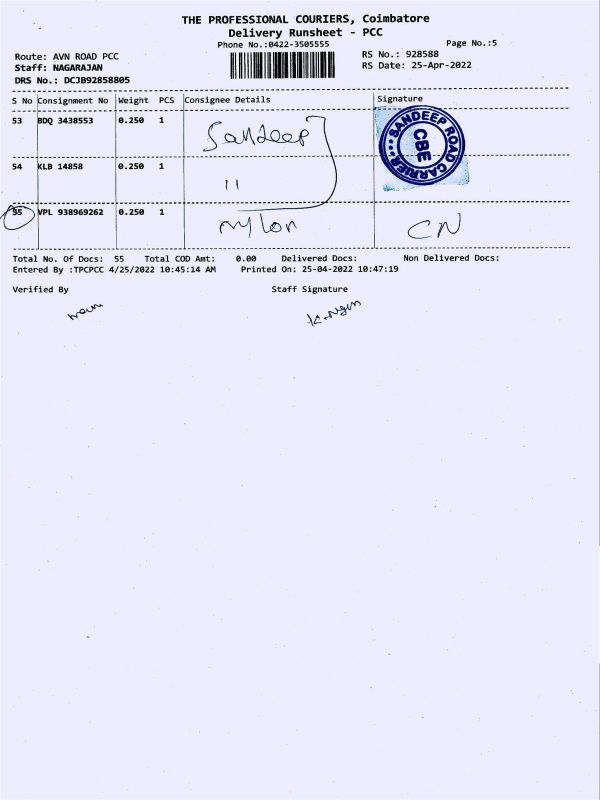 THE PROFESSIONAL COURIERS, Coimbatore
Delivery Runsheet - PCC
Phone No.:0422-3505555
Page No.:5
Route: AVN ROAD PCC
RS No.: 928588
Staff: NAGARAJAN
RS Date: 25-Apr-2022
DRS No.: DCJB92858805
S No Consignment No Weight PCS Consignee Details Signature
53 BDQ 3438553 0.250 1 Sandeep
SANDEEP ROAD CARRIER
CBE
54 KLB 14858 0.250 1 "
55 VPL 938969262 0.250 1 nylon CN
Total No. Of Docs: 55 Total COD Amt: 0.00 Delivered Docs: Non Delivered Docs:
Entered By :TPCPCC 4/25/2022 10:45:14 AM Printed On: 25-04-2022 10:47:19
Verified By Staff Signature